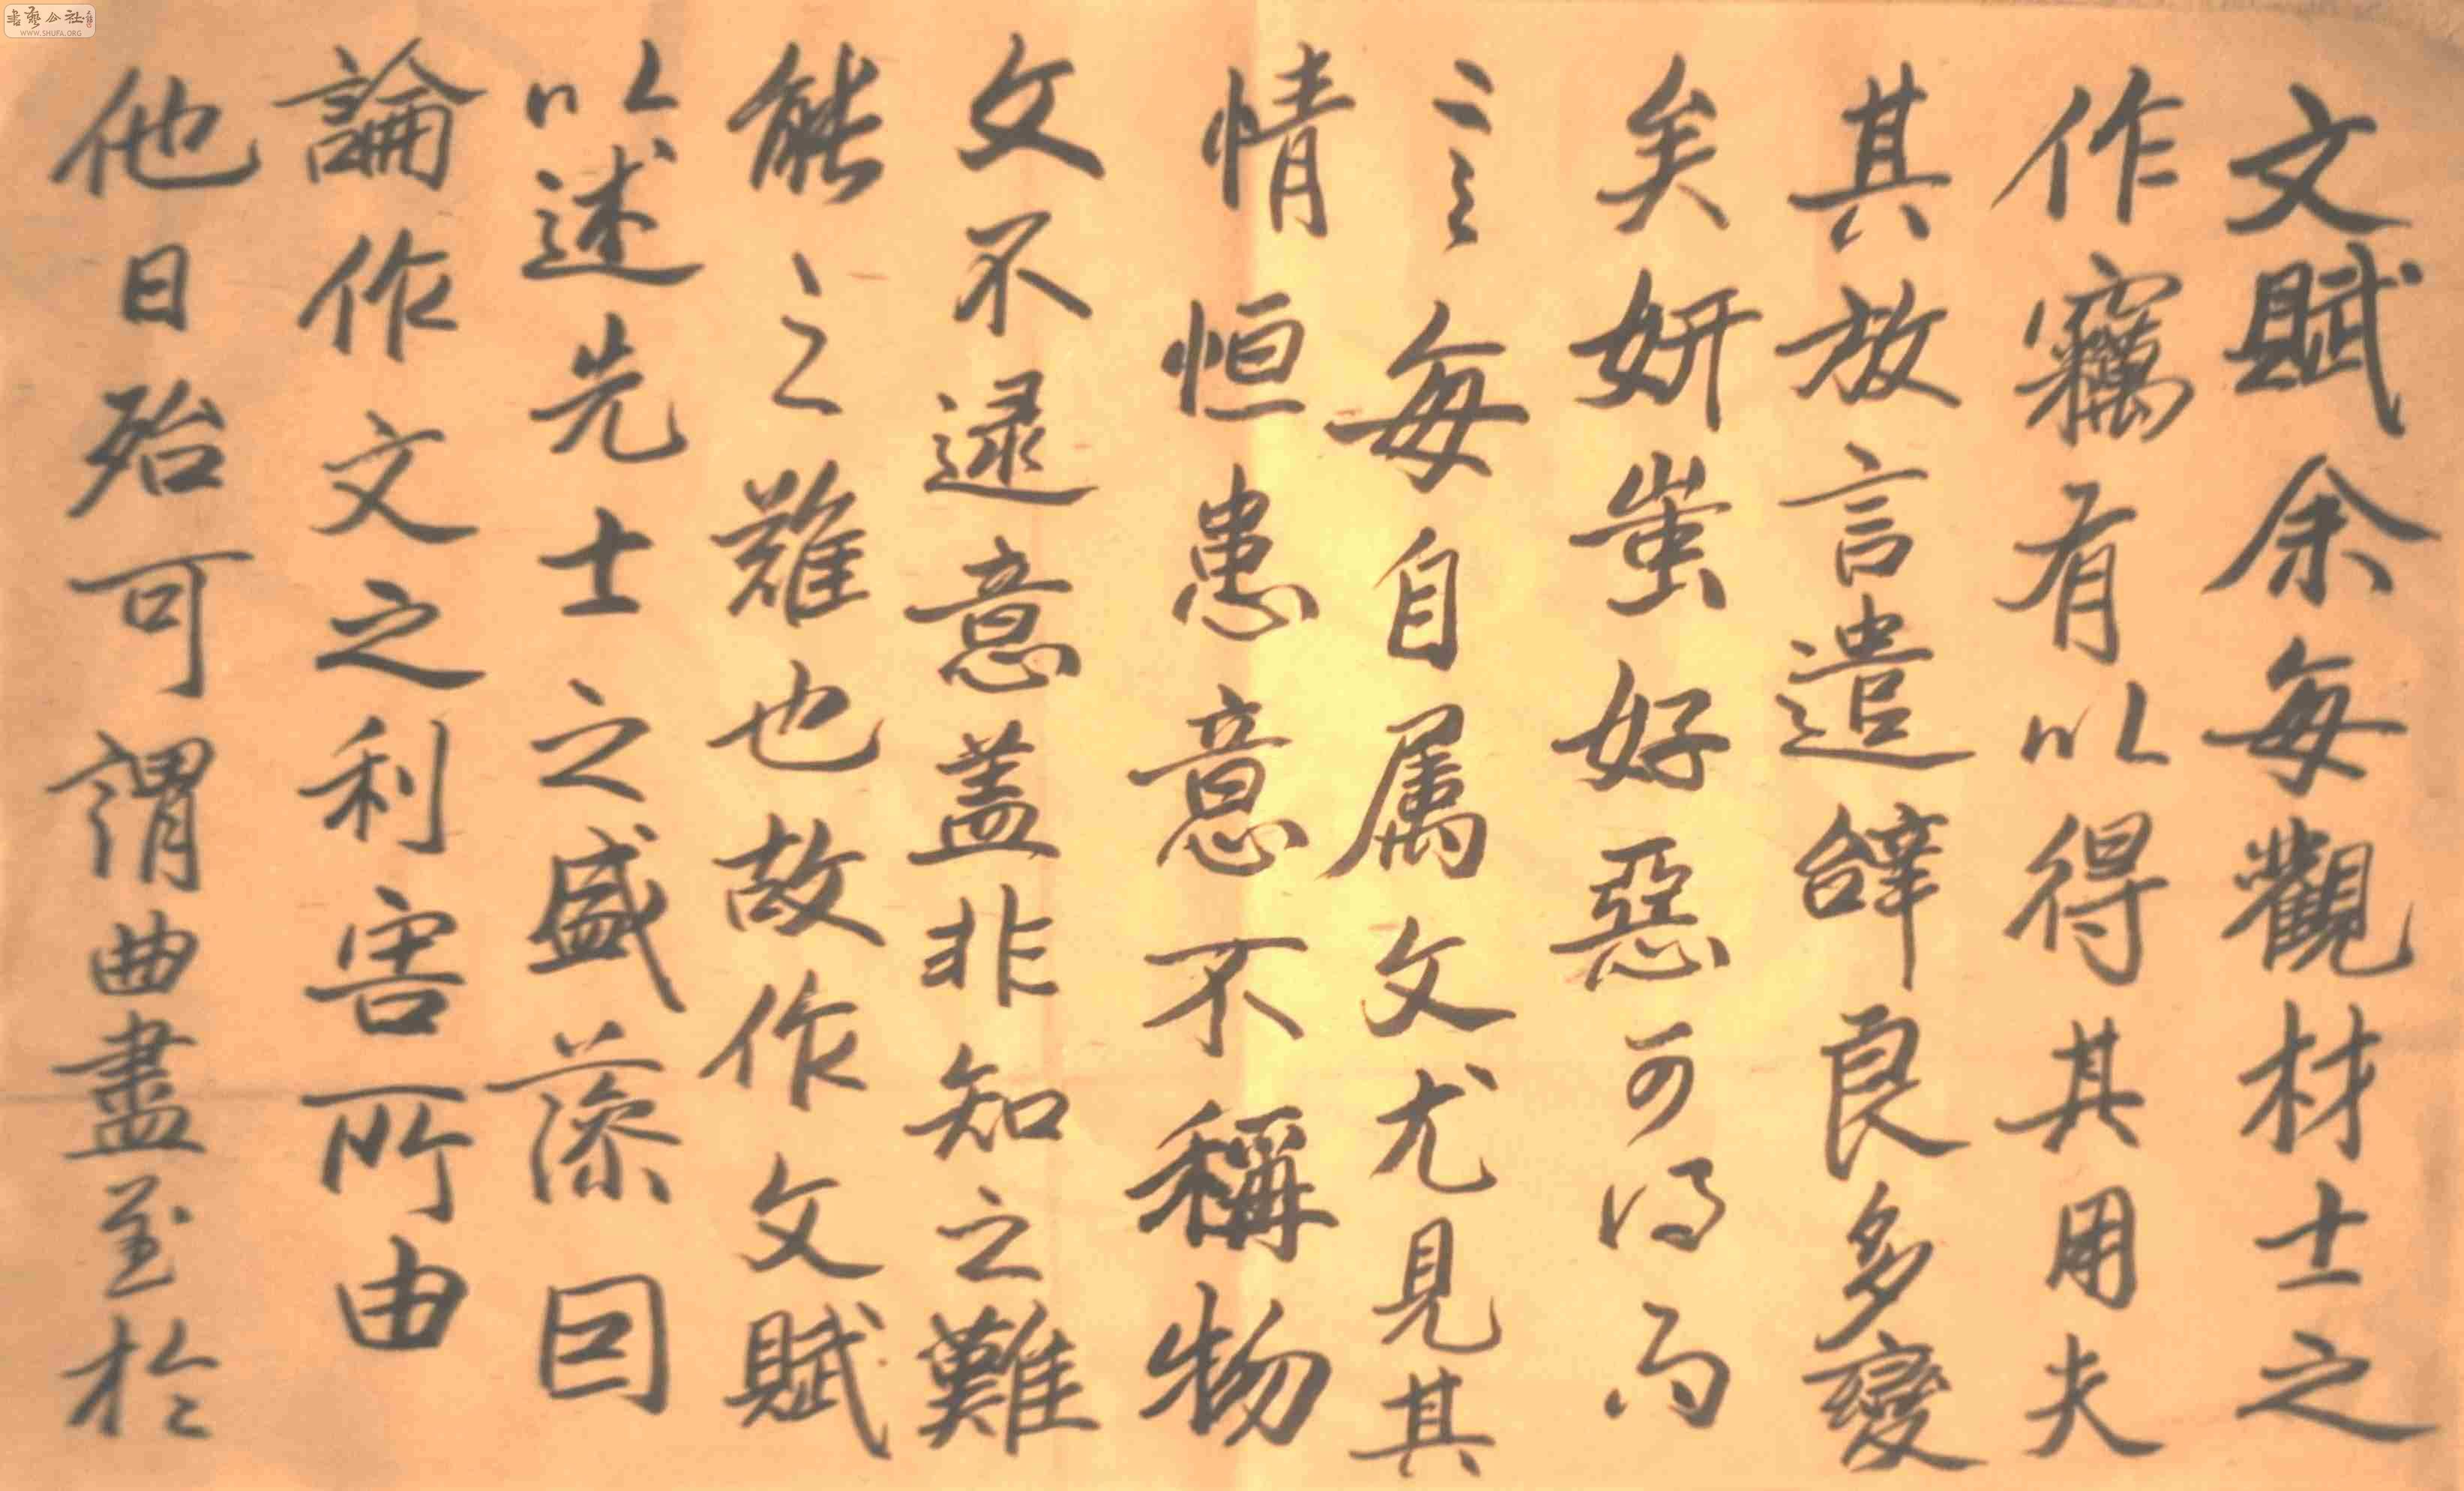 文賦余每觀材士之
作竊有以得其用夫
其放言遣辤良多變
矣妍蚩好惡可得而
言每自属文尤見其
情恒患意不稱物
文不逮意盖非知之難
能之難也故作文賦
以述先士之盛藻因
論作文之利害所由
他日殆可謂曲盡至於
書藝公社
WWW.SHUFA.ORG